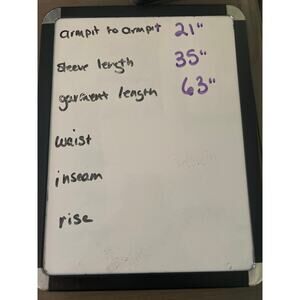 armpit to armpit 21"
sleeve length 35"
garment length 63"
waist
inseam
rise